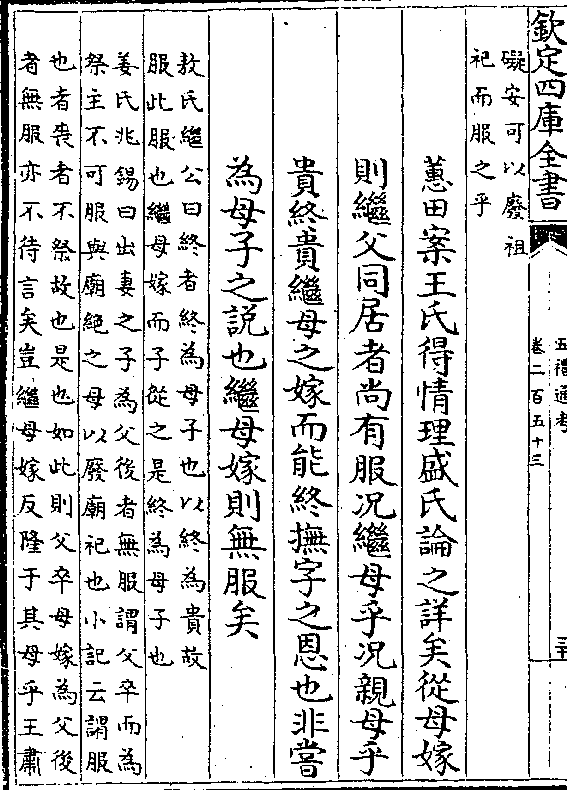 欽定四庫全書
五禮通考
卷二百五十三
礙安可以廢祖
祀而服之乎
蕙田案王氏得情理盛氏論之詳矣從母嫁
則繼父同居者尚有服况繼母乎况親母乎
貴終貴繼母之嫁而能終撫字之恩也非嘗
為母子之說也繼母嫁則無服矣
敖氏繼公曰終者終為母子也以終為貴故
服此服也繼母嫁而子從之是終為母子也
姜氏兆錫曰出妻之子為父後者無服謂父卒而為
祭主不可服與廟絶之母以廢廟祀也小記云謂服
也者喪者不祭故也是也如此則父卒母嫁為父後
者無服亦不待言矣豈繼母嫁反隆于其母乎王肅